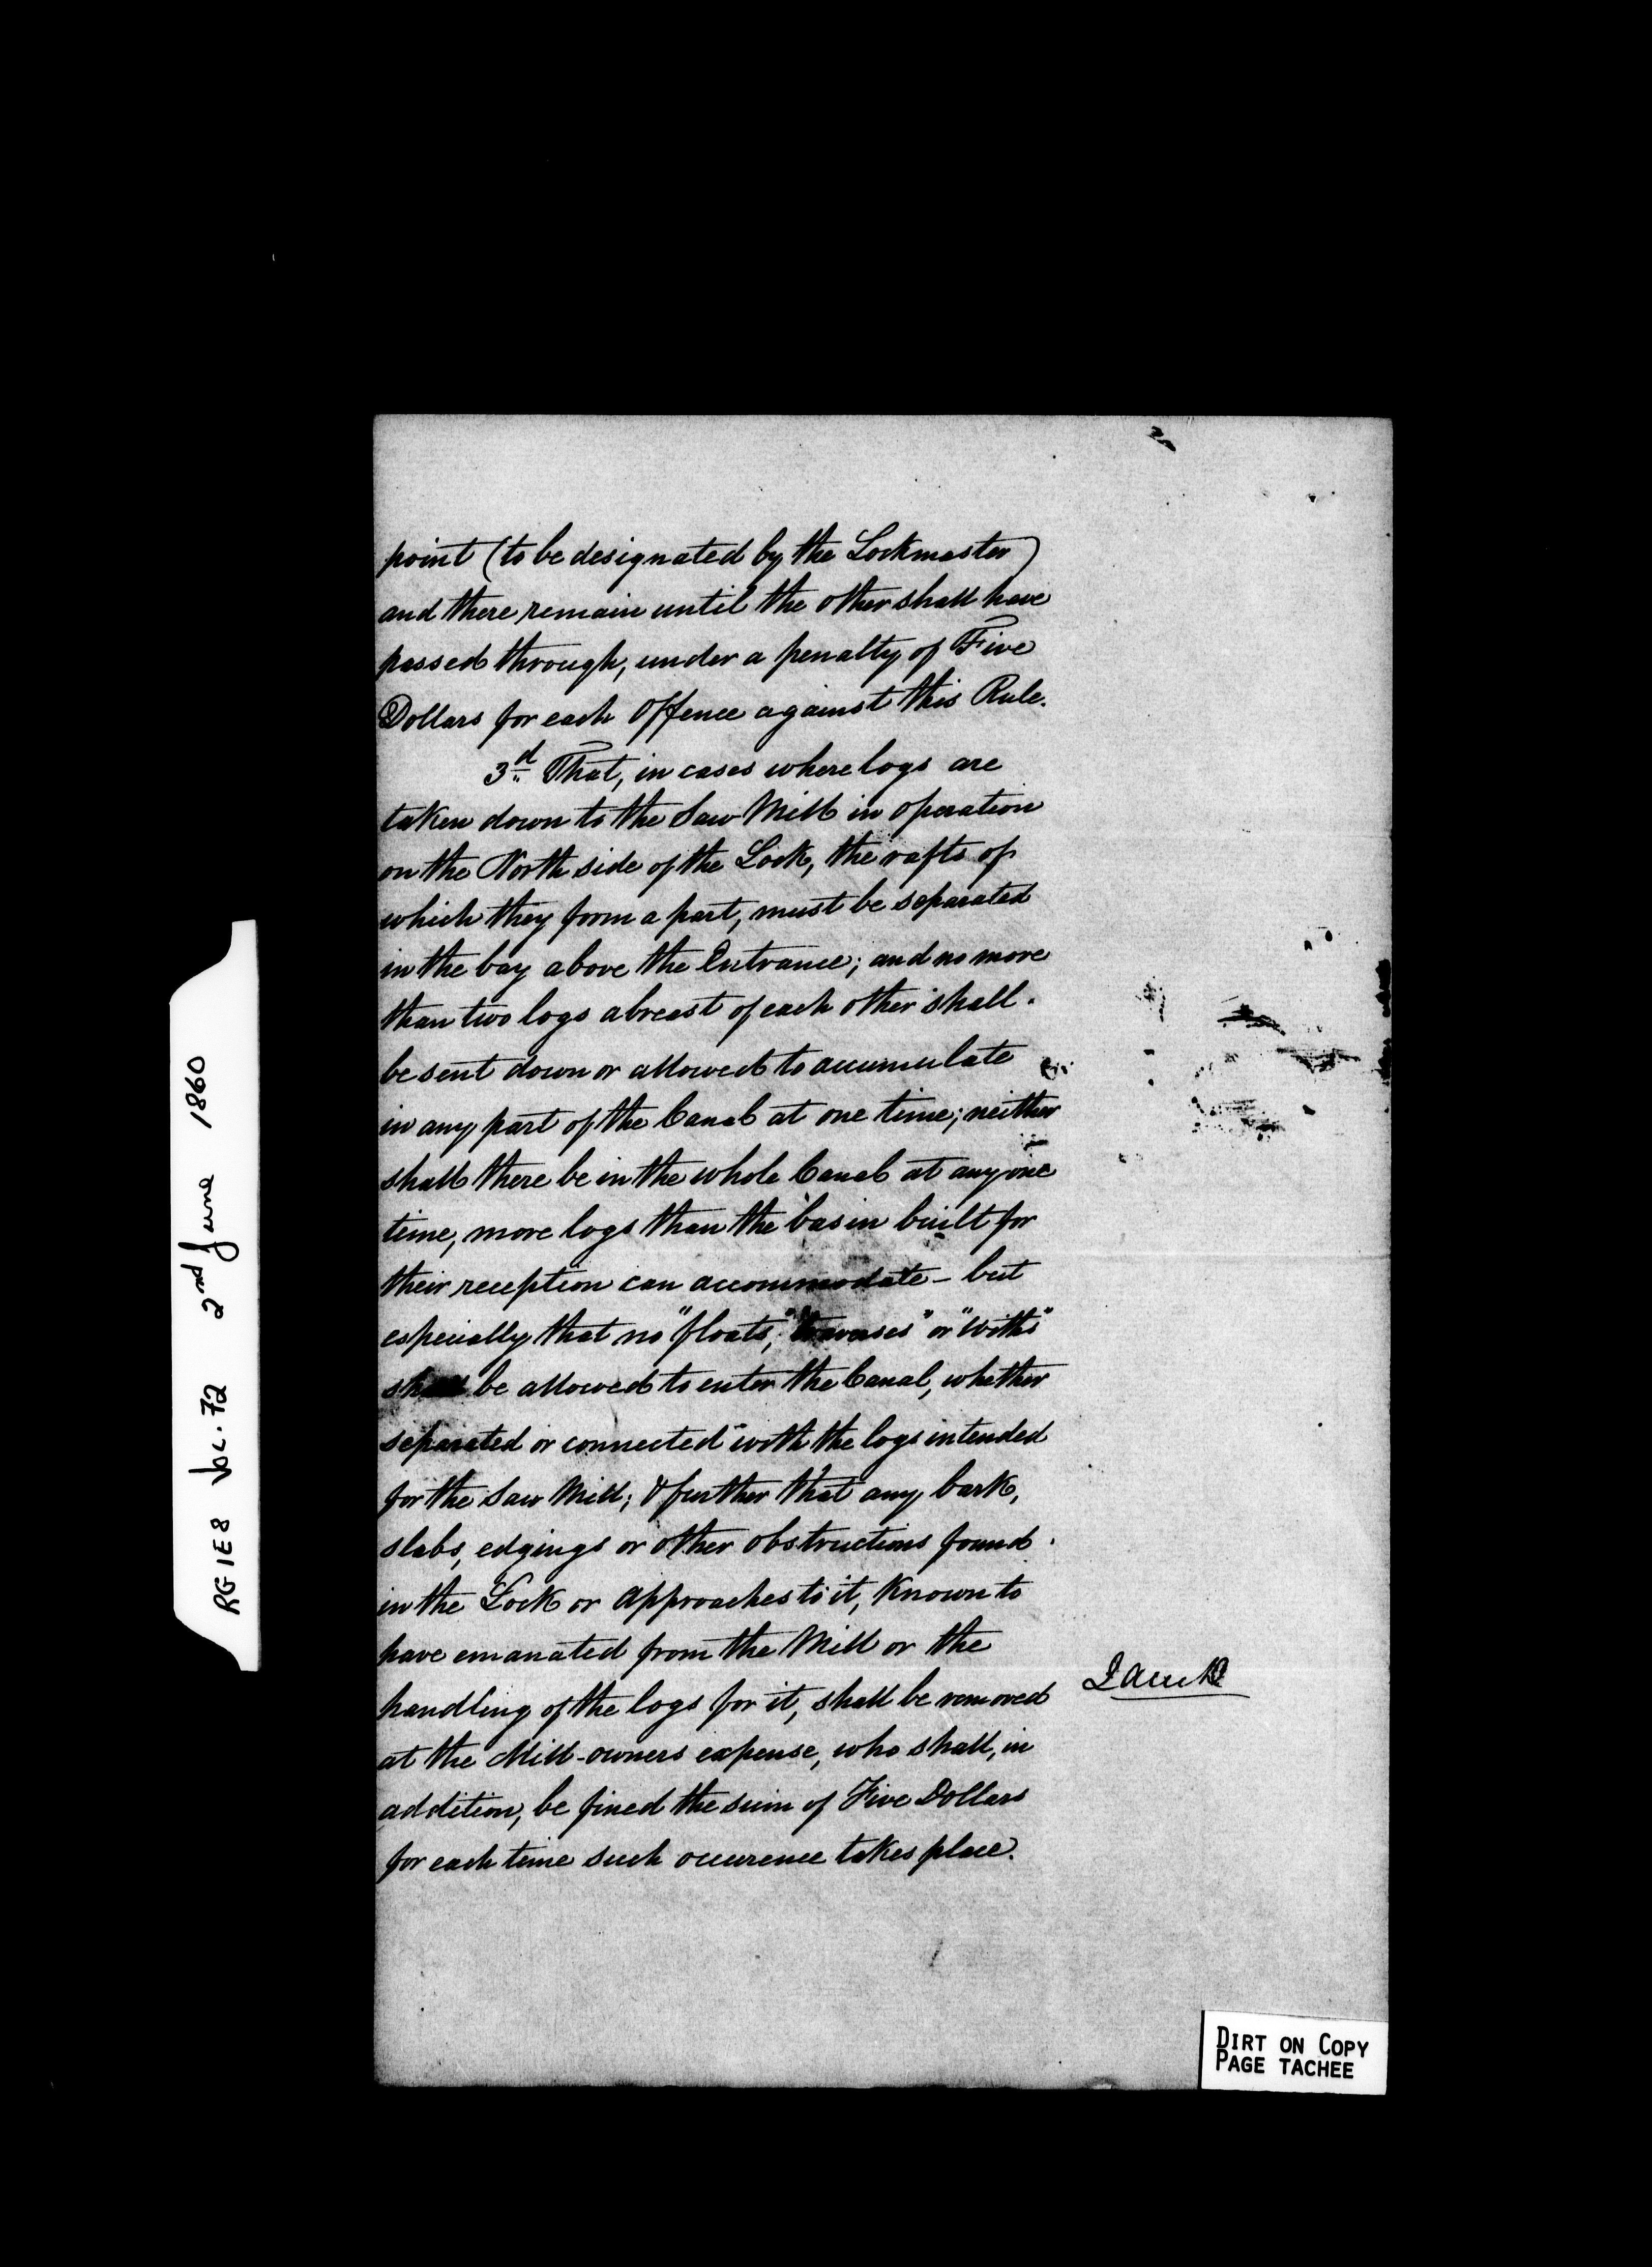 point (to be designated by the Lockmaster)
and there remain until the other shall have
passed through, under a penalty of Five
Dollars for each Offence against this Rule.
3d That, in cases where logs are
taken down to the Saw Mill in operation
on the North side of the Lock, the rafts of
which they form a part, must be separated
in the bay above the Entrance; and no more
than two logs abreast of each other shall
be sent down or allowed to accumulate
in any part of the Canal at one time; neither
shall there be in the whole Canal at any one
time, more logs than the basin built for
their reception can accommodate - but
especially that no "floats," "traverses" or "withs"
shall be allowed to enter the Canal, whether
separated or connected with the logs intended
for the Saw Mill; & further that any bark,
slabs, edgings or other obstructions found
in the Lock or approaches to it, known to
have emanated from the Mill or the
handling of the logs for it, shall be removed
at the Mill-owners expense, who shall, in
addition, be fined the sum of Five Dollars
for each time such occurence takes place.
RG 1E8 Vol. 72 2nd June 1860
DIRT ON COPY
PAGE TACHEE